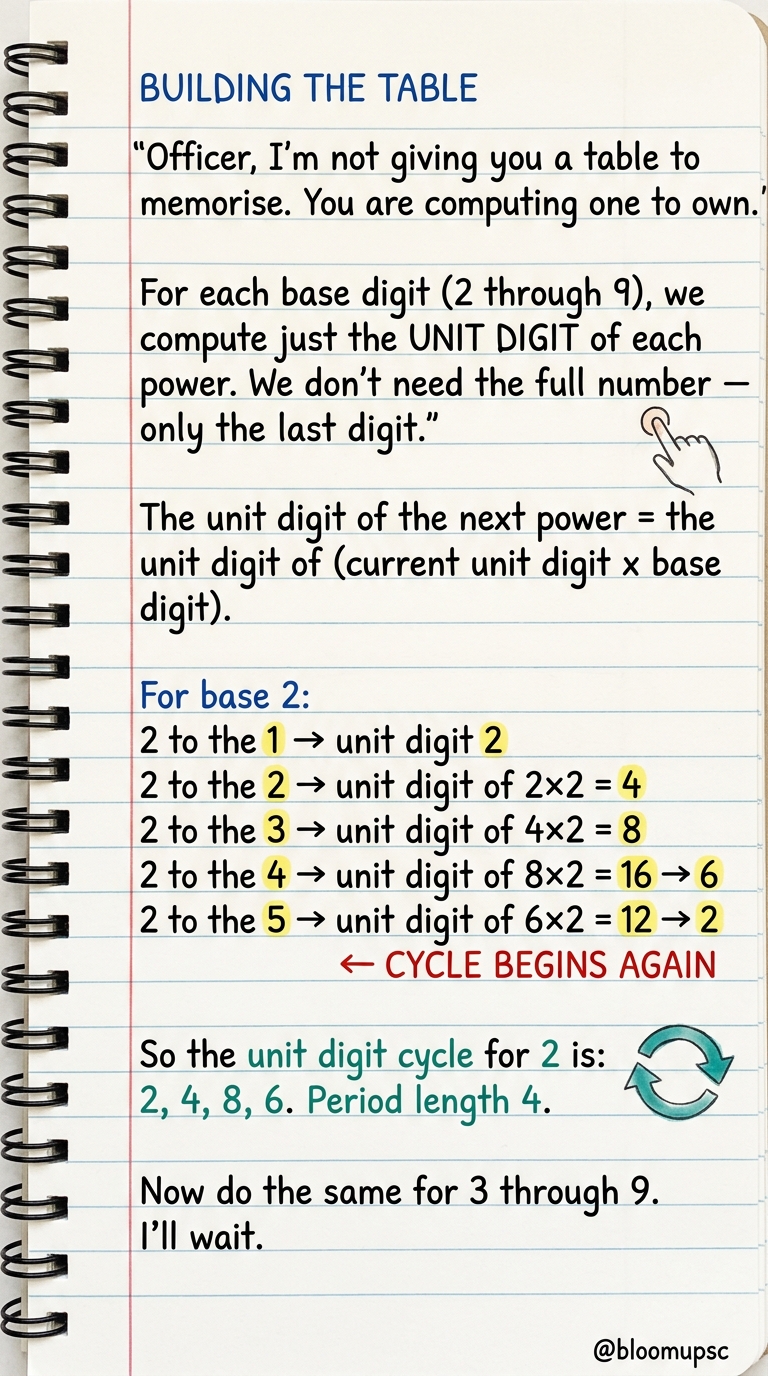 BUILDING THE TABLE
“Officer, I’m not giving you a table to
memorise. You are computing one to own.’
For each base digit (2 through 9), we
compute just the UNIT DIGIT of each
power. We don’t need the full number —
only the last digit.”
The unit digit of the next power = the
unit digit of (current unit digit x base
digit).
For base 2:
2 to the 1 → unit digit 2
2 to the 2 → unit digit of 2×2 = 4
2 to the 3 → unit digit of 4×2 = 8
2 to the 4 → unit digit of 8×2 = 16 → 6
2 to the 5 → unit digit of 6×2 = 12 → 2
← CYCLE BEGINS AGAIN
So the unit digit cycle for 2 is:
2, 4, 8, 6. Period length 4.
Now do the same for 3 through 9.
I’ll wait.
@bloomupsc